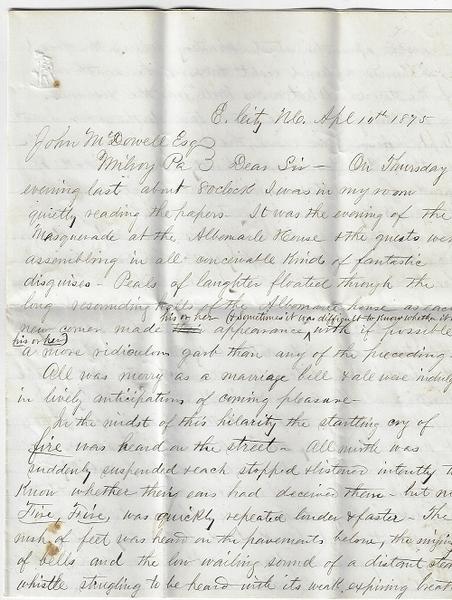 E. City, N.C. Apl 10th 1875
John McDowell Esq
Milroy Pa } Dear Sir – On Thursday
evening last about 8 oclock I was in my room
quietly reading the papers – It was the evening of the
Masquerade at the Albemarle House & the guests wer
assembling in all conceivable kinds of fantastic
disguises – Peals of laughter floated through the
long resounding halls of the Albemarle house as each
his or her (& sometimes it was difficult to know whether it
new comer made appearance ^ with if possible
his or her)
a more ridiculous garb than any of the preceding –
All was merry as a marriage bell & all were indulg
in lively anticipations of coming pleasure –
In the midst of this hilarity the startling cry of
fire was heard on the street – All mirth was
suddenly suspended & each stopped & listened intently t
know whether their ears had deceived them – but no
Fire, Fire, was quickly repeated louder & faster – The
rush of feet was heard on the pavements below, the
of bells and the low wailing sound of a distant steam
whistle struggling to be heard with its weak expiring breath